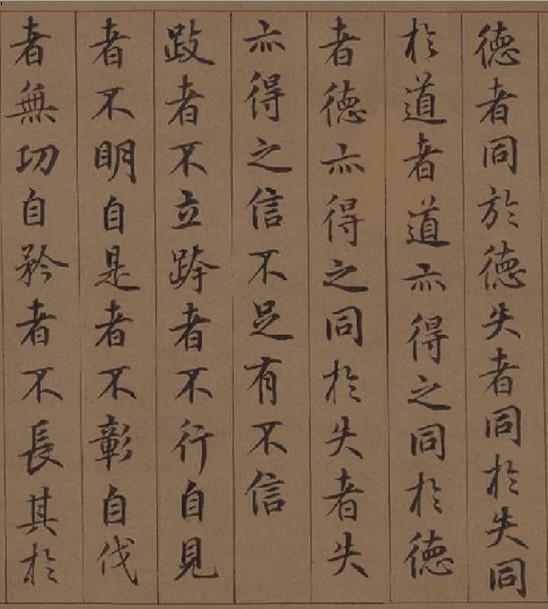 德者同於德失者同於失同
於道者道亦得之同於德
者德亦得之同於失者失
亦得之信不足有不信
跂者不立跨者不行自見
者不明自是者不彰自伐
者無功自矜者不長其於